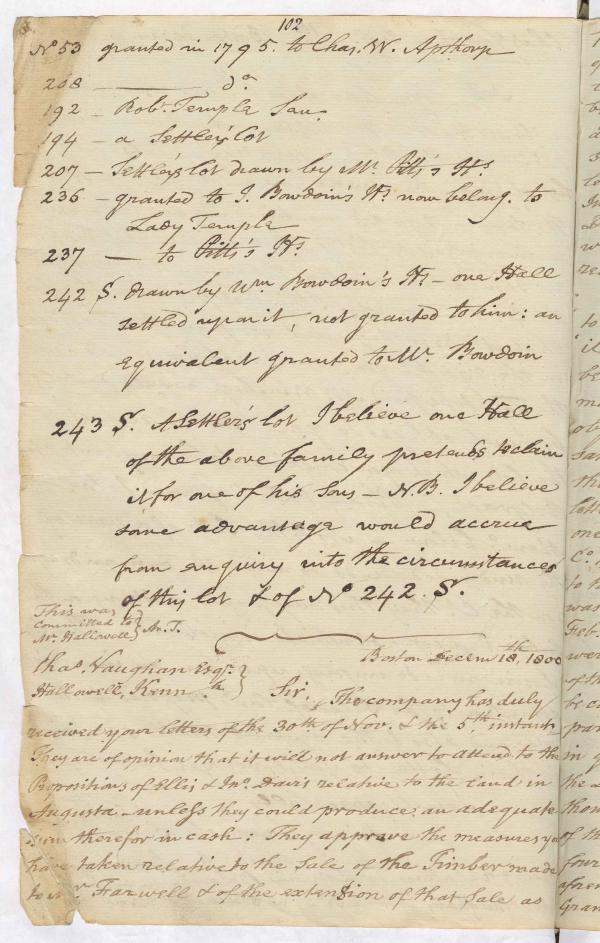 102
No 53 granted in 1795. to Chas. W. Apthorp
208 ——— do
192 — Robt. Temple Senr.
194 — a Settler's lot
207 — Settler's lot drawn by Mr. Pitts's Hs.
236 — granted to J. Bowdoin's Hs. now belong. to
Lady Temple
237 — to Pitts's Hs.
242 S. drawn by Wm Bowdoin's Hs — one Hall
settled upon it, not granted to him: an
equivalent granted to Mr. Bowdoin
243 S. A Settler's lot I believe one Hall
of the above family pretends to claim
it for one of his Sons — N.B. I believe
some advantage would accrue
from enquiry into the circumstances
of this lot & of No 242. S.
This was
committed to
Mr. Hallowell
Boston Decem 18th, 1800
Chas. Vaughan Esqr.
Hallowell, Kenn.
Sir. The company has duly
received your letters of the 30th of Nov. & the 5th instant
They are of opinion that it will not answer to attend to the
Propositions of Ellis & Jno. Davis relative to the land in
Augusta — unless they could produce an adequate
sum therefor in cash: They approve the measures you
have taken relative to the Sale of the Timber made
to Mr. Farwell & of the extension of that Sale as